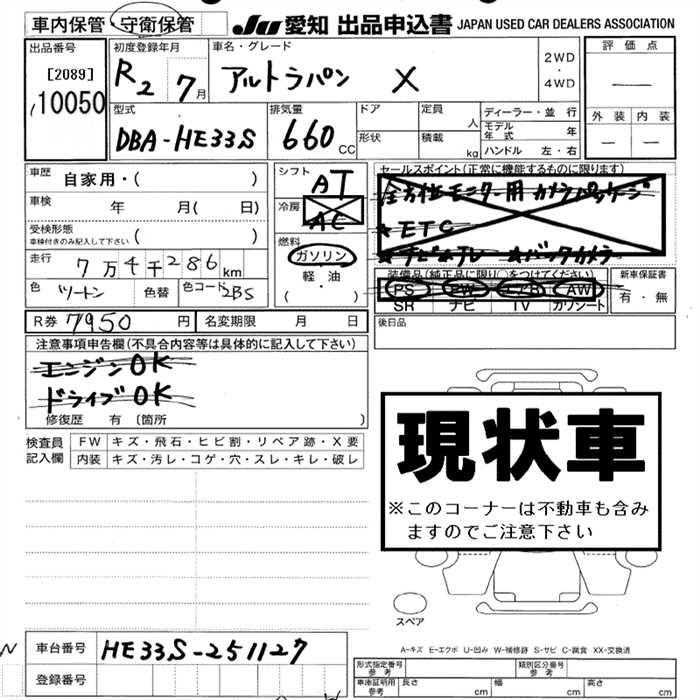 車内保管・守衛保管
JU 愛知 出品申込書 JAPAN USED CAR DEALERS ASSOCIATION
出品番号
[2089]
10050
初度登録年月
R2 7月
車名・グレード
アルトラパン X
2WD
・
4WD
評価点
—
外装 内装
— —
型式
DBA-HE33S
排気量
660cc
ドア
形状
定員
人
積載
kg
ディーラー・並行
モデル年式 年
ハンドル 左・右
車歴 自家用・( )
車検 年 月( 日)
受検形態
車検付きのみ記入して下さい ( )
走行 7万4千286km
色 ツートン 色替 色コード 2BS
シフト AT
冷房 AC
燃料
ガソリン
軽・油
( )
セールスポイント(正常に機能するものに限ります)
全方位モニター用カメラパッケージ
★ETC
★ナビ ★バックカメラ
装備品(純正品に限り○をつけてください)
PS PW エアB AW
SR ナビ TV カワシート
新車保証書
有・無
R券 7950円 名変期限 月 日
後日品
注意事項申告欄(不具合内容等は具体的に記入して下さい)
エンジンOK
ドライブOK
修復歴 有 〔箇所 〕
検査員記入欄
FW キズ・飛石・ヒビ割・リペア跡・X要
内装 キズ・汚レ・コゲ・穴・スレ・キレ・破レ
現状車
※このコーナーは不動車も含み
ますのでご注意下さい
スペア
A-キズ E-エクボ U-凹み W-補修跡 S-サビ C-腐食 XX-交換済
車台番号 HE33S-251127
登録番号
形式指定番号 参考
類別区分番号 参考
車庫証明用 参考 長さ cm 幅 cm 高さ cm